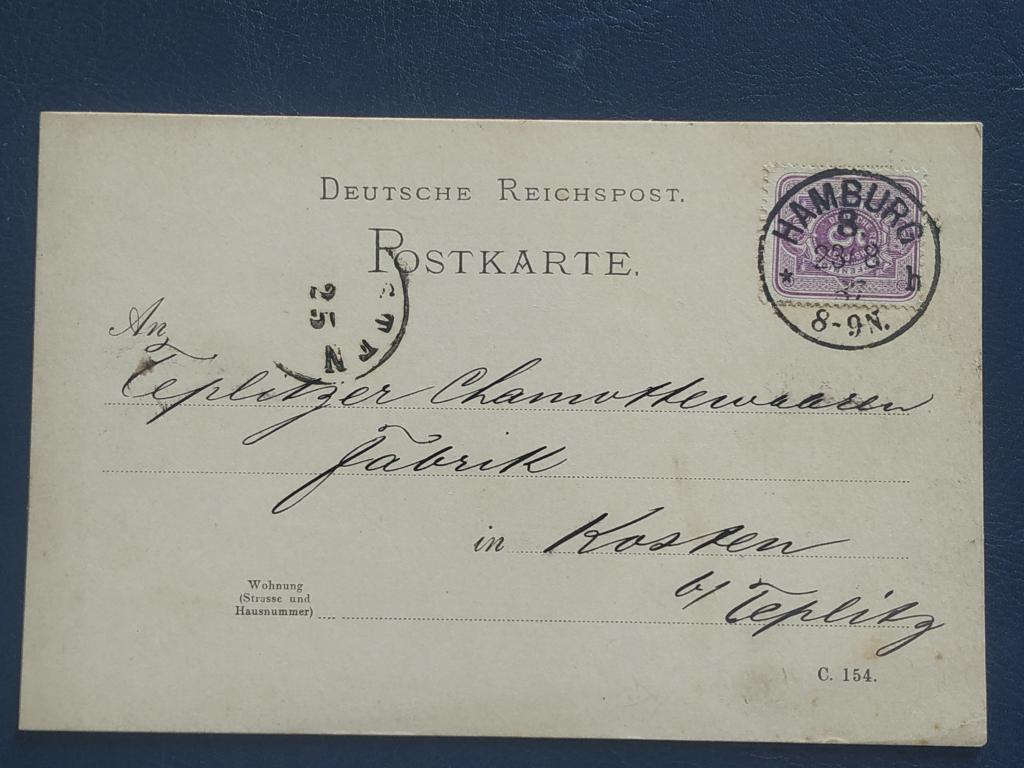 DEUTSCHE REICHSPOST.
POSTKARTE.
HAMBURG
8.
23/8
8-9N.
* h
25
N
An
Teplitzer Chamottewaaren
Fabrik
in Kosten
b/ Teplitz
Wohnung
(Strasse und
Hausnummer)
C. 154.